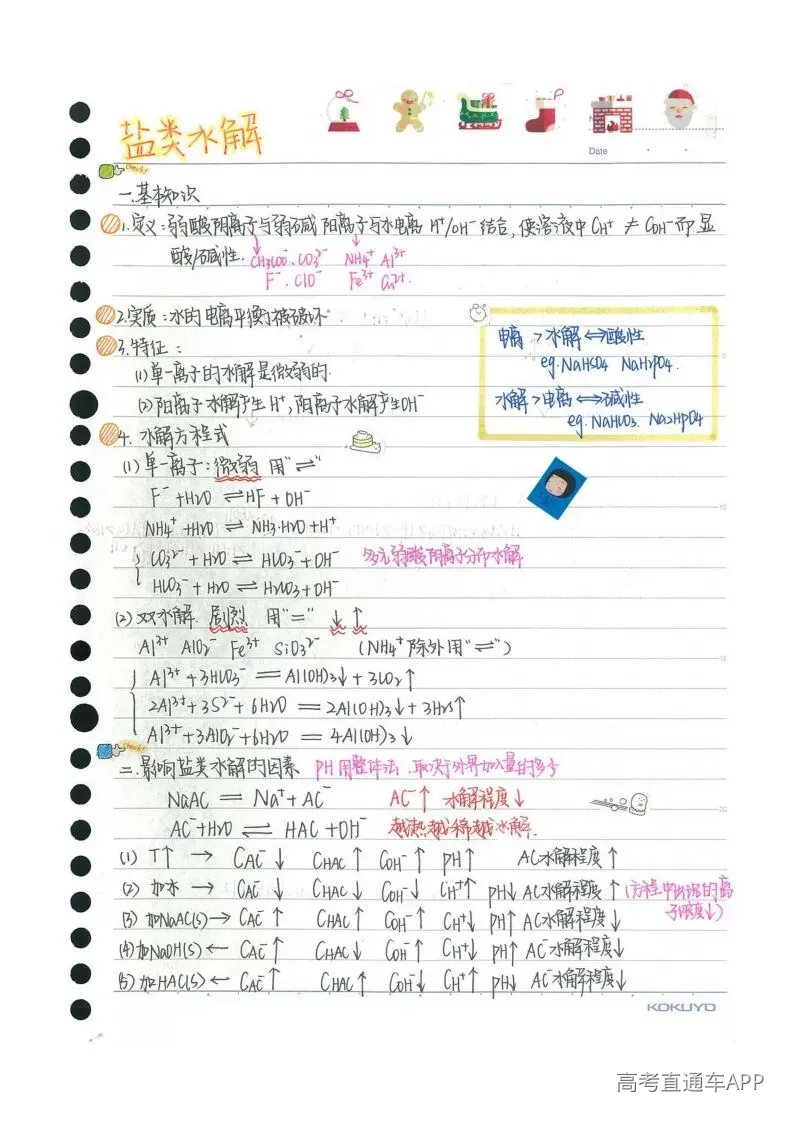 盐类水解
Date
check!
一.基本知识
1.定义:弱酸阴离子与弱碱阳离子与水电离 H⁺/OH⁻结合,使溶液中CH⁺ ≠ COH⁻而显
酸/碱性.
CH3COO⁻ CO3²⁻ NH4⁺ Al³⁺
F⁻ . ClO⁻ Fe³⁺ Cu²⁺
2.实质:水的电离平衡被破坏
3.特征:
(1)单一离子的水解是微弱的.
(2)阳离子水解产生H⁺,阳离子水解产生OH⁻
电离 > 水解 ⇔ 酸性
eg.NaHSO4 NaH2PO4.
水解 > 电离 ⇔ 碱性
eg.NaHCO3. Na2HPO4
4. 水解方程式
(1)单一离子:微弱 用"⇌"
F⁻ + H2O ⇌ HF + OH⁻
NH4⁺ + H2O ⇌ NH3·H2O + H⁺
CO3²⁻ + H2O ⇌ HCO3⁻ + OH⁻ 多元弱酸阴离子分步水解
HCO3⁻ + H2O ⇌ H2CO3 + OH⁻
(2)双水解. 剧烈 用"=" ↓ ↑
Al³⁺ AlO2⁻ Fe³⁺ SiO3²⁻ (NH4⁺除外用"⇌")
Al³⁺ + 3HCO3⁻ = Al(OH)3↓ + 3CO2↑
2Al³⁺ + 3S²⁻ + 6H2O = 2Al(OH)3↓ + 3H2S↑
Al³⁺ + 3AlO2⁻ + 6H2O = 4Al(OH)3↓
check!
二.影响盐类水解的因素 PH用整体法.取决于外界加入量的多少
NaAC = Na⁺ + AC⁻ AC⁻↑ 水解程度↓
AC⁻ + H2O ⇌ HAC + OH⁻ 越热越稀越水解.
(1) T↑ → CAC⁻↓ CHAC↑ COH⁻↑ pH↑ AC⁻水解程度↑
(2) 加水 → CAC⁻↓ CHAC↓ COH⁻↓ CH⁺↑ pH↓ AC⁻水解程度↑(方程中出现的离
子浓度↓)
(3) 加NaAC(s) → CAC⁻↑ CHAC↑ COH⁻↑ CH⁺↓ pH↑ AC⁻水解程度↓
(4) 加NaOH(s) ← CAC⁻↑ CHAC↓ COH⁻↑ CH⁺↓ pH↑ AC⁻水解程度↓
(5) 加HAC(s) ← CAC⁻↑ CHAC↑ COH⁻↓ CH⁺↑ pH↓ AC⁻水解程度↓
KOKUYO
高考直通车APP